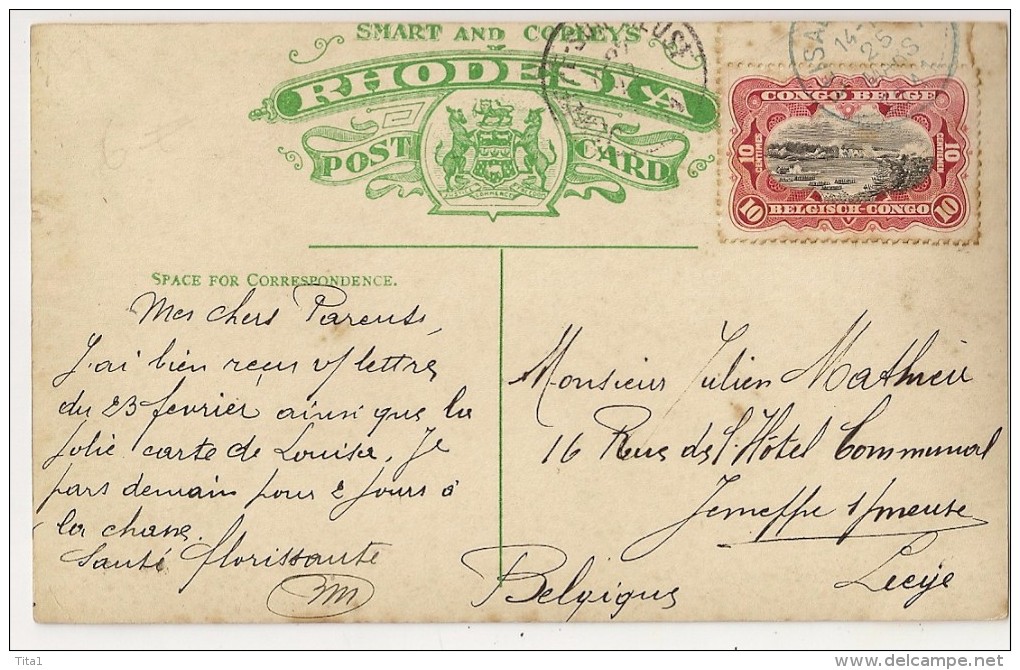 SMART AND COPLEYS
RHODESIA
POST CARD
CONGO BELGE
10 CENTIMES
10 CENTIMEN
10 BELGISCH-CONGO 10
SPACE FOR CORRESPONDENCE.
Mes chers Parents,
J'ai bien reçu vf lettre
du 23 fevrier ainsi que la
jolie carte de Louisa. Je
pars demain pour 2 jours à
la chasse.
Santé florissante
Monsieur Julien Mathieu
16 Rue de l'Hôtel Communal
Jemeppe s/meuse
Liege
Belgique
Tita1
delcampe.net